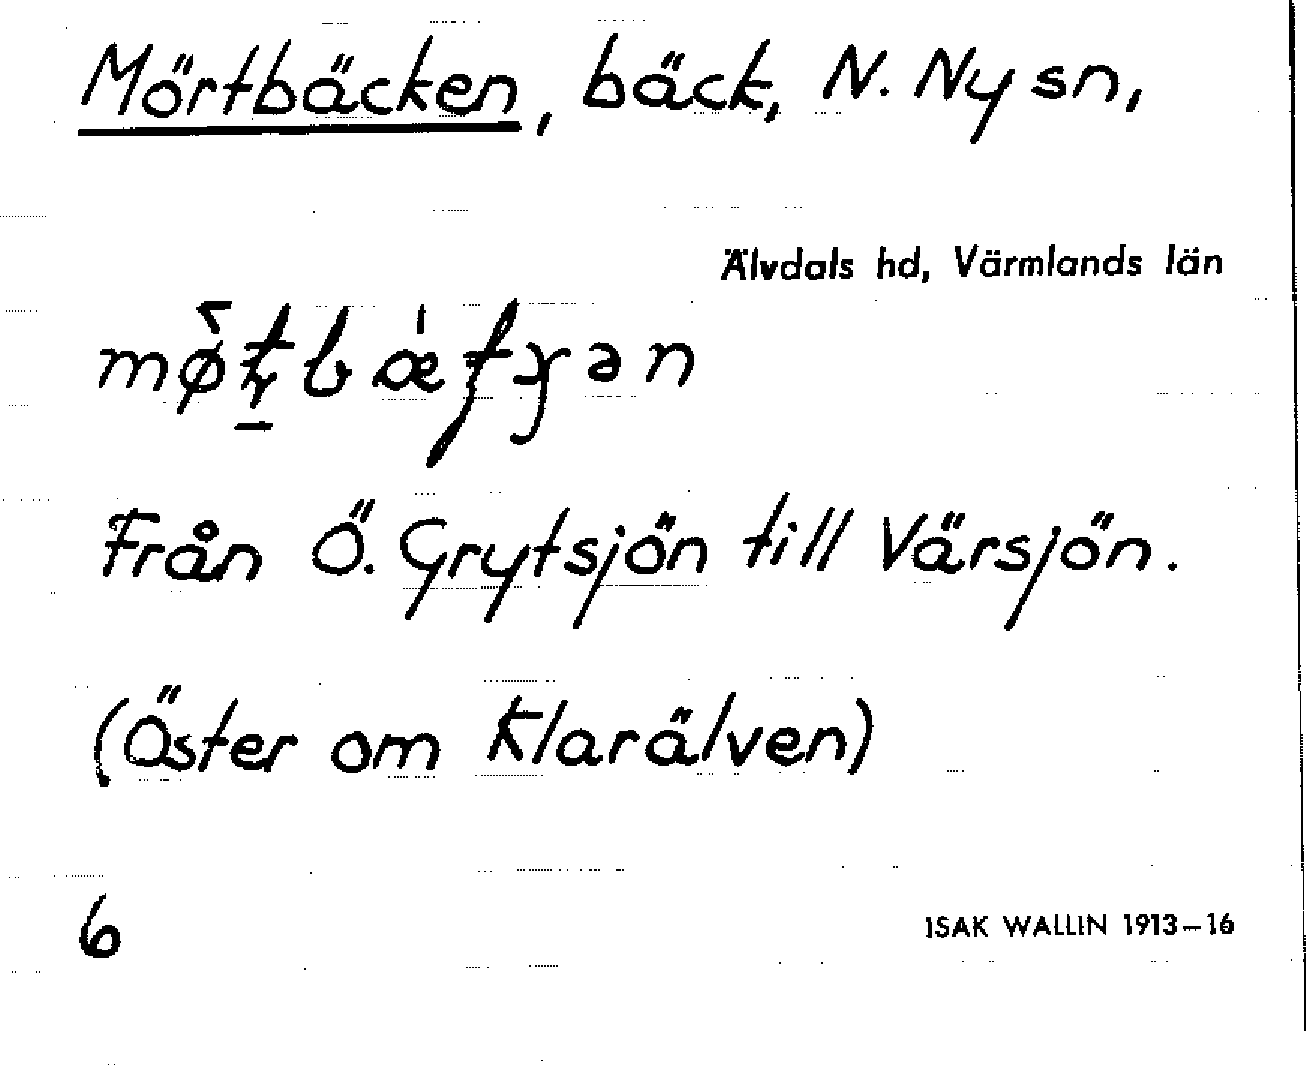 Mörtbäcken, bäck, N. Ny sn,
Älvdals hd, Värmlands län
Från Ö. Grytsjön till Värsjön.
(Öster om Klarälven)
6
ISAK WALLIN 1913–16